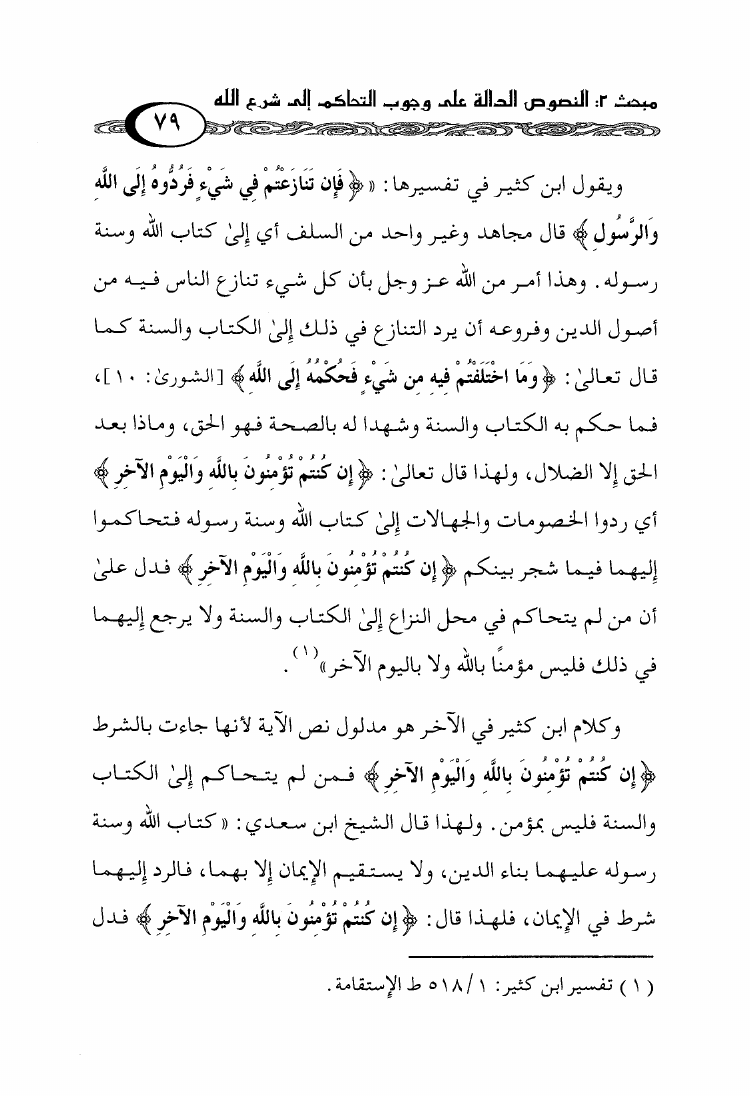 مبحث ٢: النصوص الدالة على وجوب التحاكم إلى شرع الله
٧٩
ويقول ابن كثير في تفسيرها: «﴿ فَإِن تَنَازَعْتُمْ فِي شَيْءٍ فَرُدُّوهُ إِلَى اللَّهِ
وَالرَّسُولِ ﴾ قال مجاهد وغير واحد من السلف أي إلىٰ كتاب الله وسنة
رسوله. وهذا أمر من الله عز وجل بأن كل شيء تنازع الناس فيه من
أصول الدين وفروعه أن يرد التنازع في ذلك إلىٰ الكتاب والسنة كما
قال تعالىٰ: ﴿ وَمَا اخْتَلَفْتُمْ فِيهِ مِن شَيْءٍ فَحُكْمُهُ إِلَى اللَّهِ ﴾ [الشورىٰ: ١٠]،
فما حكم به الكتاب والسنة وشهدا له بالصحة فهو الحق، وماذا بعد
الحق إلا الضلال، ولهذا قال تعالىٰ: ﴿ إِن كُنتُمْ تُؤْمِنُونَ بِاللَّهِ وَالْيَوْمِ الآخِرِ ﴾
أي ردوا الخصومات والجهالات إلىٰ كتاب الله وسنة رسوله فتحاكموا
إليهما فيما شجر بينكم ﴿ إِن كُنتُمْ تُؤْمِنُونَ بِاللَّهِ وَالْيَوْمِ الآخِرِ ﴾ فدل علىٰ
أن من لم يتحاكم في محل النزاع إلىٰ الكتاب والسنة ولا يرجع إليهما
في ذلك فليس مؤمنًا بالله ولا باليوم الآخر»(١).
وكلام ابن كثير في الآخر هو مدلول نص الآية لأنها جاءت بالشرط
﴿ إِن كُنتُمْ تُؤْمِنُونَ بِاللَّهِ وَالْيَوْمِ الآخِرِ ﴾ فمن لم يتحاكم إلىٰ الكتاب
والسنة فليس بمؤمن. ولهذا قال الشيخ ابن سعدي: «كتاب الله وسنة
رسوله عليهما بناء الدين، ولا يستقيم الإيمان إلا بهما، فالرد إليهما
شرط في الإيمان، فلهذا قال: ﴿ إِن كُنتُمْ تُؤْمِنُونَ بِاللَّهِ وَالْيَوْمِ الآخِرِ ﴾ فدل
(١) تفسير ابن كثير: ٥١٨/١ ط الإستقامة.